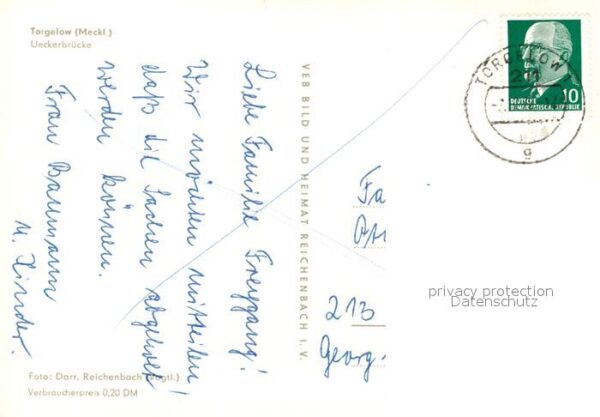 Torgelow (Meckl.)
Ueckerbrücke
Liebe Familie Freygang!
Wir möchten mitteilen
daß die Sachen abgeholt
werden können.
Frau Baumann
u. Kinder.
VEB BILD UND HEIMAT REICHENBACH I. V.
TORGELOW
210
g
10
DEUTSCHE
DEMOKRATISCHE REPUBLIK
Fa
213
Georg-
privacy protection
Datenschutz
Foto: Darr, Reichenbach (Vogtl.)
Verbraucherpreis 0,20 DM